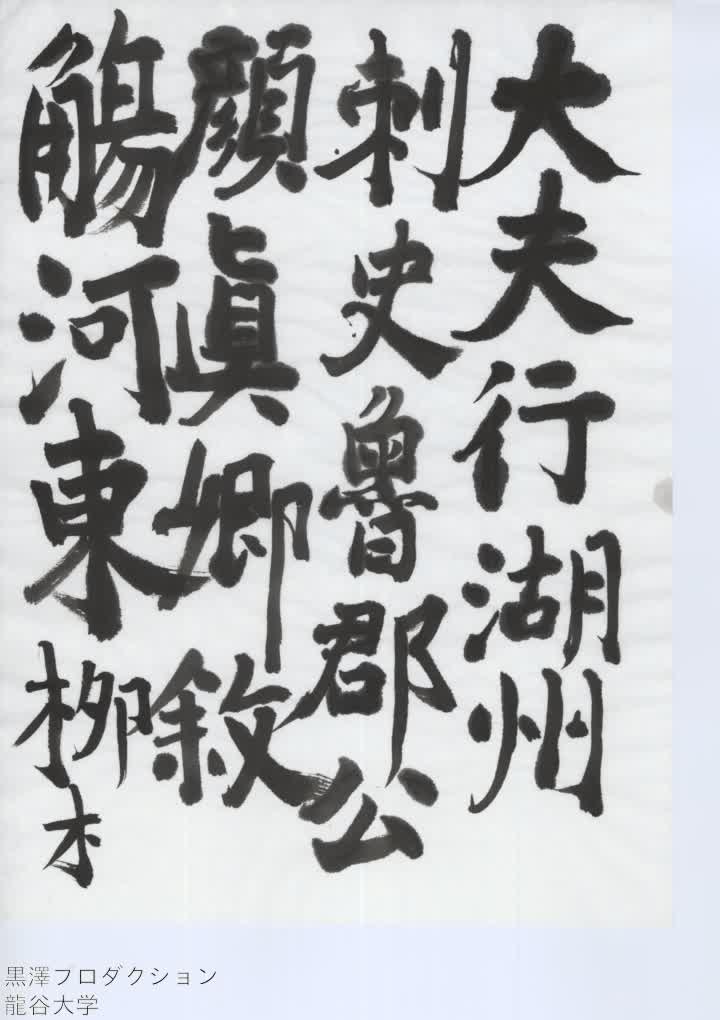 大夫行湖州
刺史魯郡公
顔眞卿敘
河東柳木
黒澤プロダクション
龍谷大学